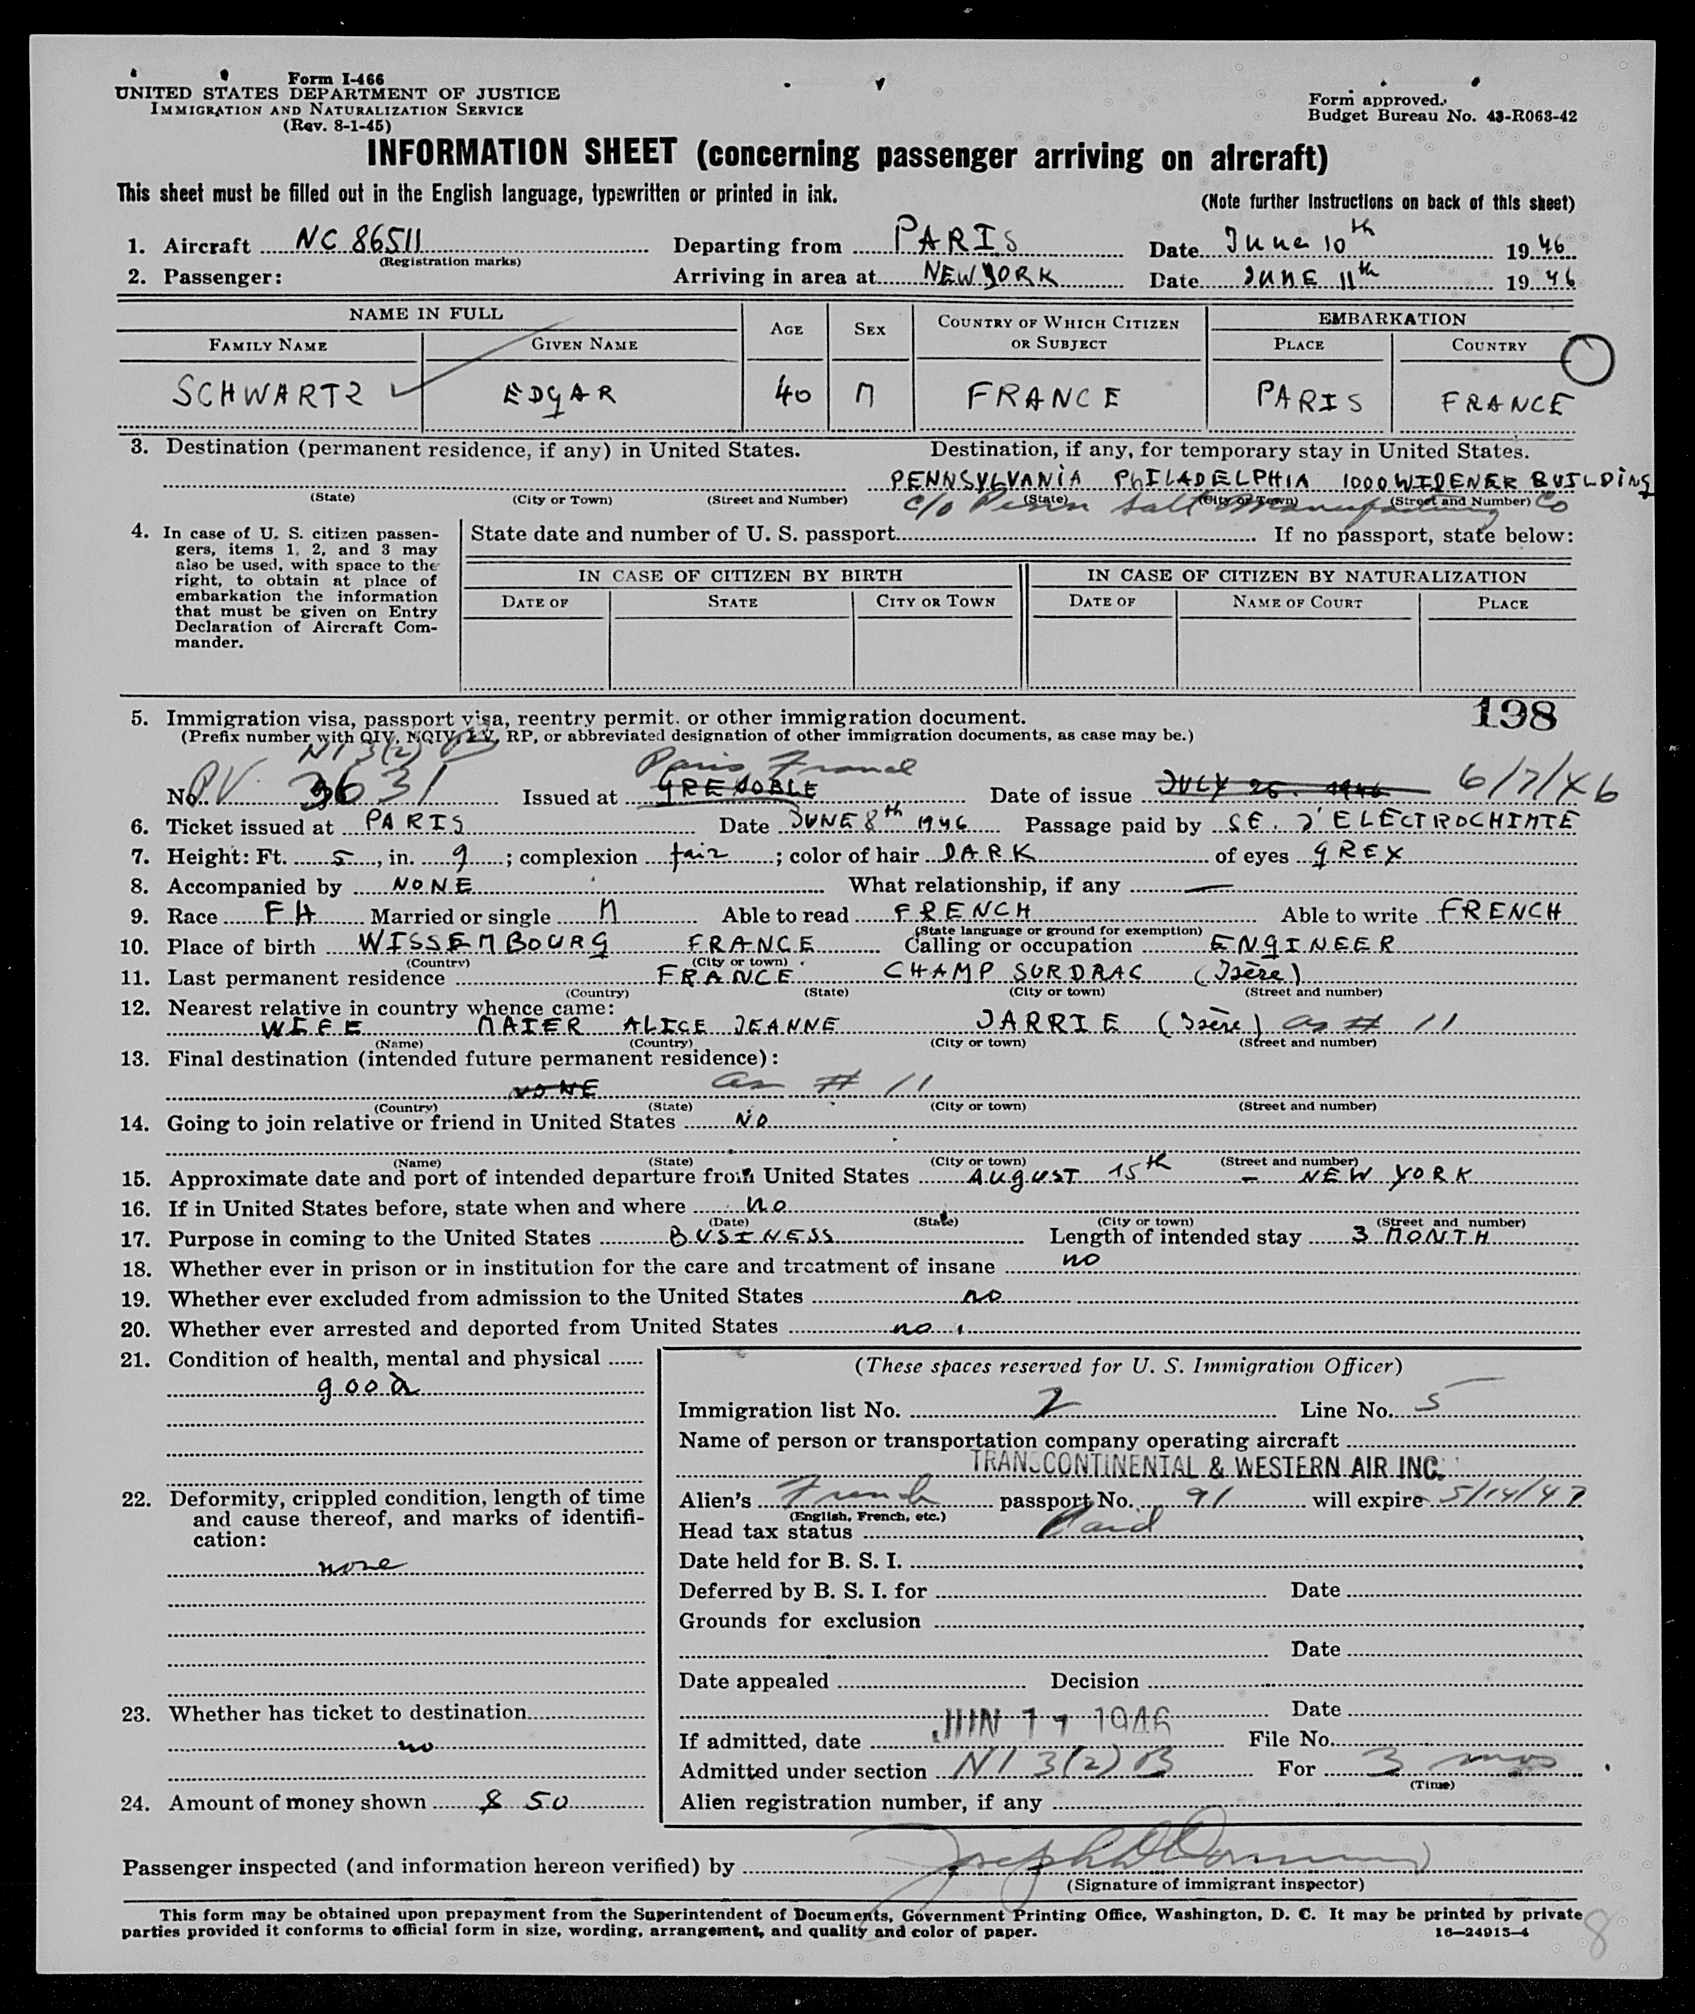 Form I-466
UNITED STATES DEPARTMENT OF JUSTICE
IMMIGRATION AND NATURALIZATION SERVICE
(Rev. 8-1-45)
Form approved.
Budget Bureau No. 43-R063-42
INFORMATION SHEET (concerning passenger arriving on aircraft)
This sheet must be filled out in the English language, typewritten or printed in ink.
(Note further instructions on back of this sheet)
1. Aircraft NC 86511 Departing from PARIS Date June 10th 1946
(Registration marks)
2. Passenger: Arriving in area at NEW YORK Date JUNE 11th 1946
NAME IN FULL AGE SEX COUNTRY OF WHICH CITIZEN OR SUBJECT EMBARKATION
FAMILY NAME GIVEN NAME PLACE COUNTRY
SCHWARTZ EDGAR 40 M FRANCE PARIS FRANCE
3. Destination (permanent residence, if any) in United States. Destination, if any, for temporary stay in United States.
PENNSYLVANIA PHILADELPHIA 1000 WIDENER BUILDING
(State) (City or Town) (Street and Number) (State) (City or Town) (Street and Number)
c/o Penn Salt Manufacturing Co
4. In case of U. S. citizen passen-
gers, items 1, 2, and 3 may
also be used, with space to the
right, to obtain at place of
embarkation the information
that must be given on Entry
Declaration of Aircraft Com-
mander.
State date and number of U. S. passport If no passport, state below:
IN CASE OF CITIZEN BY BIRTH IN CASE OF CITIZEN BY NATURALIZATION
DATE OF STATE CITY OR TOWN DATE OF NAME OF COURT PLACE
198
5. Immigration visa, passport visa, reentry permit, or other immigration document.
(Prefix number with QIV, NQIV, LV, RP, or abbreviated designation of other immigration documents, as case may be.)
NI 3(2) Paris France
No. PV 3631 Issued at GRENOBLE Date of issue JULY 26. 1946 6/7/46
6. Ticket issued at PARIS Date JUNE 8th 1946 Passage paid by SE. D'ELECTROCHIMIE
7. Height: Ft. 5, in. 9; complexion fair; color of hair DARK of eyes GREY
8. Accompanied by NONE What relationship, if any —
9. Race FH Married or single M Able to read FRENCH Able to write FRENCH
(State language or ground for exemption)
10. Place of birth WISSEMBOURG FRANCE Calling or occupation ENGINEER
(Country) (City or town)
11. Last permanent residence FRANCE CHAMP SUR DRAC (Isère)
(Country) (State) (City or town) (Street and number)
12. Nearest relative in country whence came:
WIFE MAIER ALICE JEANNE JARRIE (Isère) as # 11
(Name) (Country) (City or town) (Street and number)
13. Final destination (intended future permanent residence):
NONE as # 11
(Country) (State) (City or town) (Street and number)
14. Going to join relative or friend in United States NO
(Name) (State) (City or town) (Street and number)
15. Approximate date and port of intended departure from United States AUGUST 15th - NEW YORK
16. If in United States before, state when and where no
(Date) (State) (City or town) (Street and number)
17. Purpose in coming to the United States BUSINESS Length of intended stay 3 MONTH
18. Whether ever in prison or in institution for the care and treatment of insane no
19. Whether ever excluded from admission to the United States no
20. Whether ever arrested and deported from United States no
21. Condition of health, mental and physical
good
22. Deformity, crippled condition, length of time
and cause thereof, and marks of identifi-
cation:
none
23. Whether has ticket to destination
no
24. Amount of money shown $ 50
(These spaces reserved for U. S. Immigration Officer)
Immigration list No. 2 Line No. 5
Name of person or transportation company operating aircraft
TRANSCONTINENTAL & WESTERN AIR INC.
Alien's French passport No. 91 will expire 5/14/47
(English, French, etc.)
Head tax status Paid
Date held for B. S. I.
Deferred by B. S. I. for Date
Grounds for exclusion
Date
Date appealed Decision
Date
If admitted, date JUN 11 1946 File No.
Admitted under section NI 3(2) B For 3 mos
(Time)
Alien registration number, if any
Passenger inspected (and information hereon verified) by
(Signature of immigrant inspector)
This form may be obtained upon prepayment from the Superintendent of Documents, Government Printing Office, Washington, D. C. It may be printed by private
parties provided it conforms to official form in size, wording, arrangement, and quality and color of paper.
16—24915-4
8